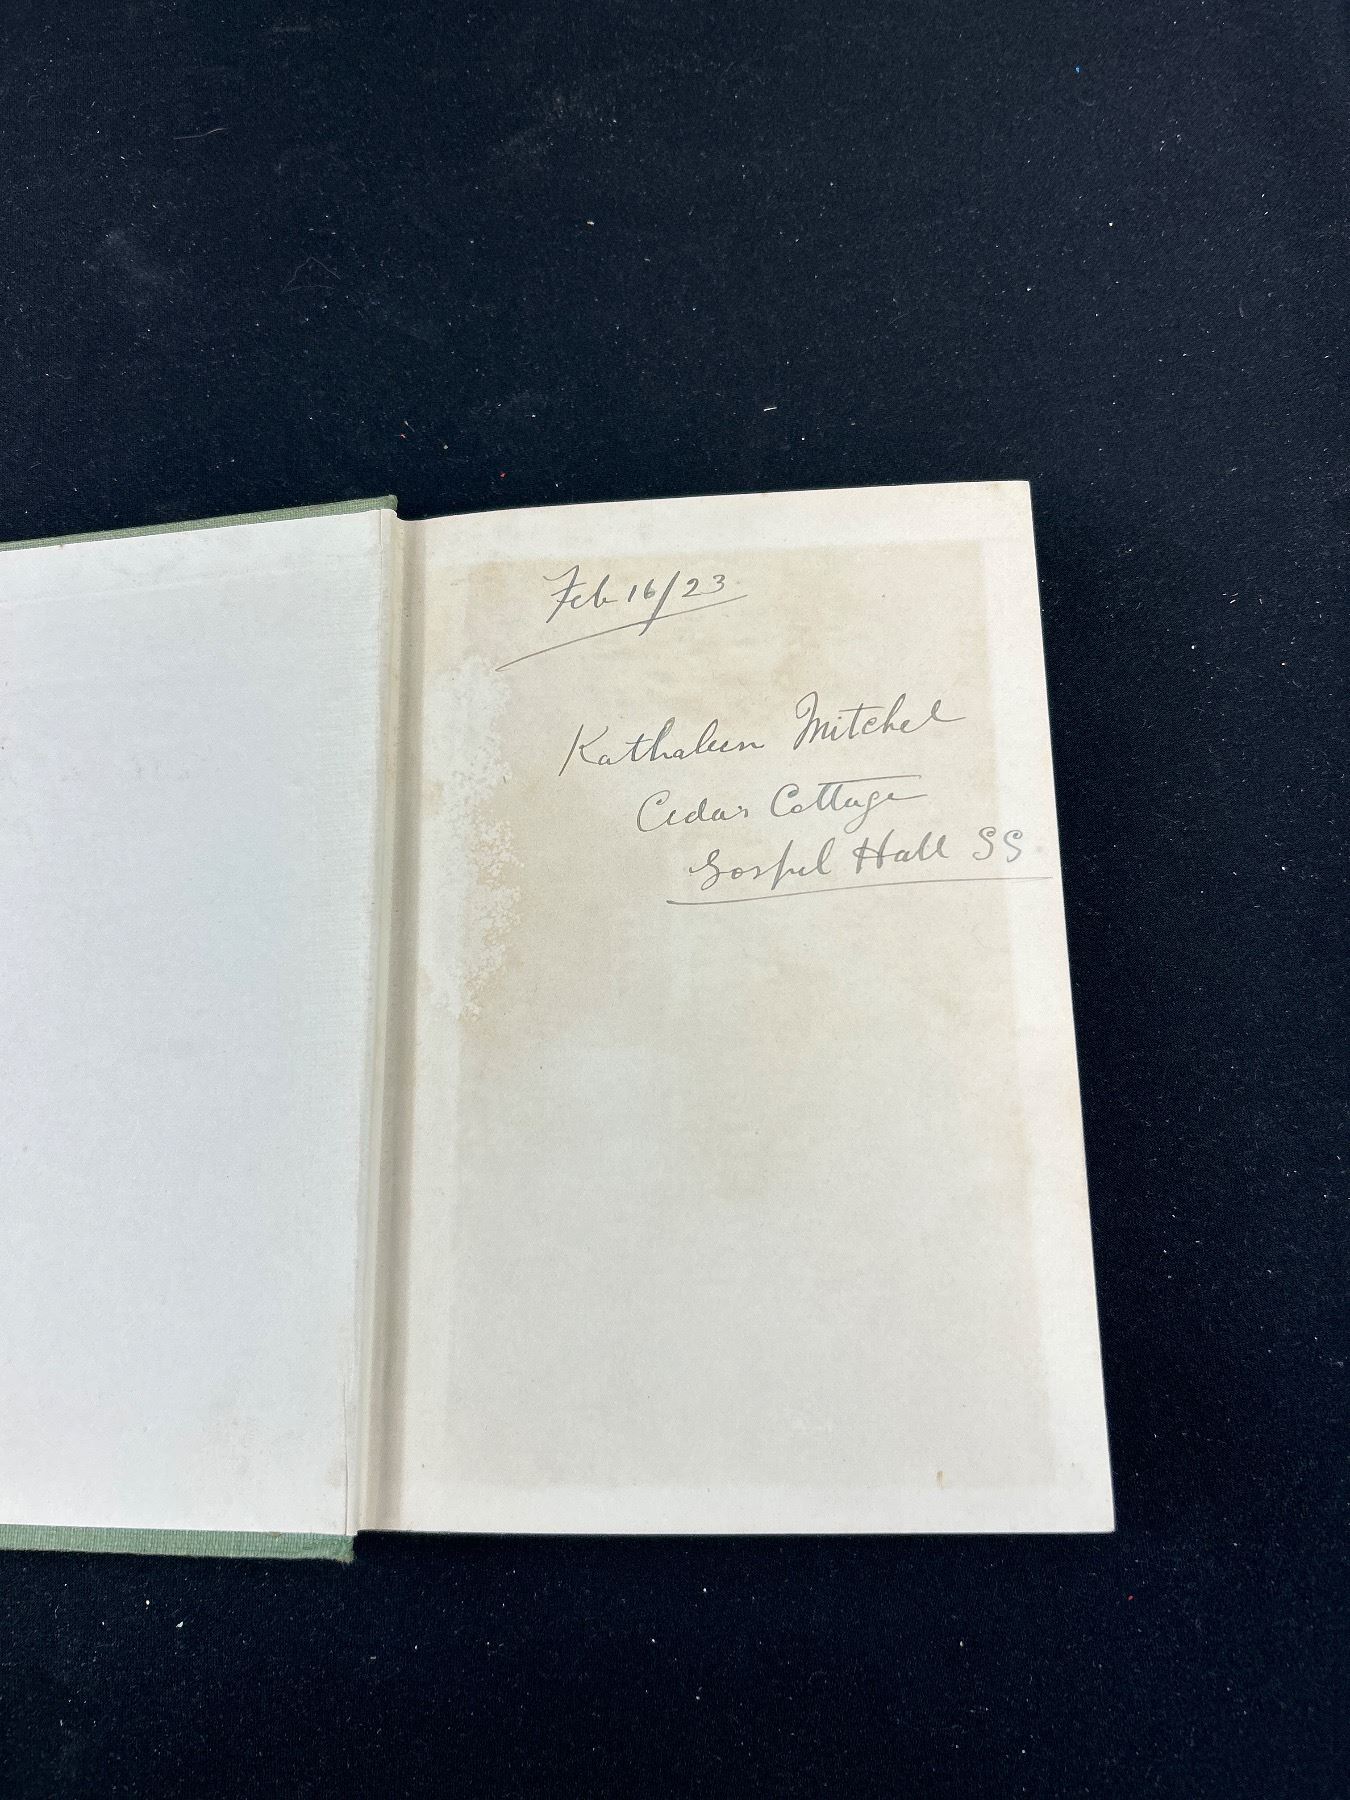 Feb 16/23
Kathaleen Mitchel
Cedar Cottage
Gospel Hall SS